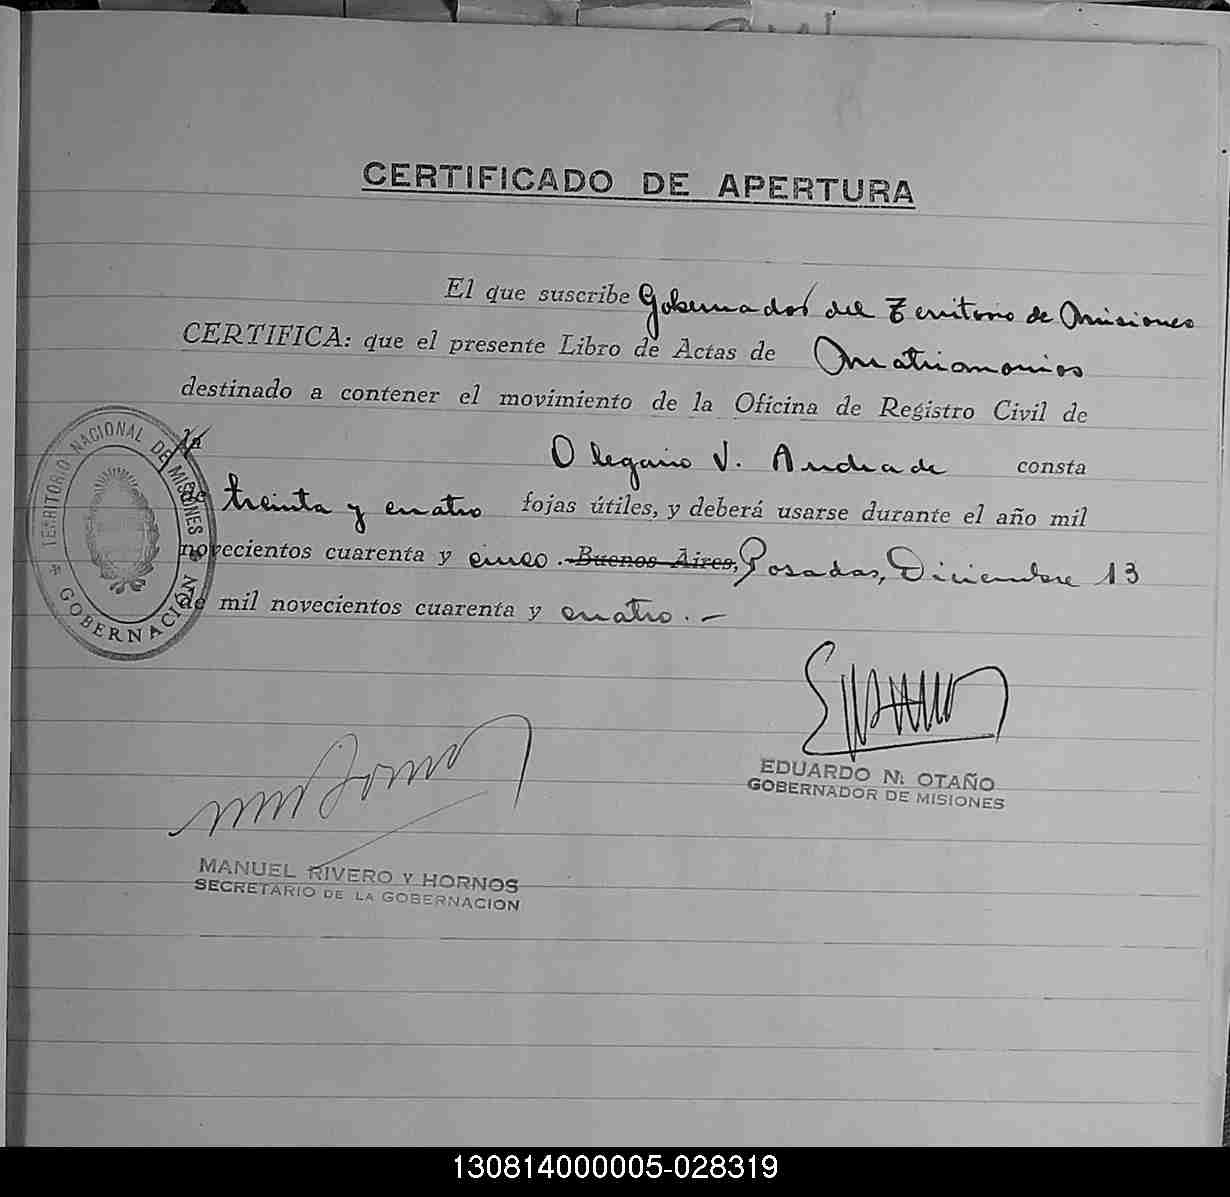 CERTIFICADO DE APERTURA
El que suscribe Gobernador del Territorio de Misiones
CERTIFICA: que el presente Libro de Actas de Matrimonios
destinado a contener el movimiento de la Oficina de Registro Civil de
Olegario V. Andrade consta
de treinta y cuatro fojas útiles, y deberá usarse durante el año mil
novecientos cuarenta y cinco. Buenos Aires, Posadas, Diciembre 13
de mil novecientos cuarenta y cuatro. —
TERRITORIO NACIONAL DE MISIONES
GOBERNACIÓN
EDUARDO N. OTAÑO
GOBERNADOR DE MISIONES
MANUEL RIVERO Y HORNOS
SECRETARIO DE LA GOBERNACION
130814000005-028319